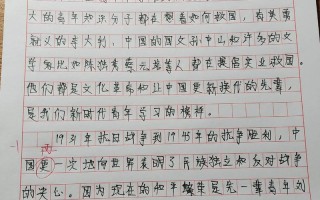 大的青年知识分子都在想着如何救国，有英勇
就义的李大钊，中国的国父孙中山和许多的文
学家比如陈独秀蔡元培等人都在提倡实业救国。
他们都是文化革命和让中国更新换代的先辈，
是我们新时代青年学习的榜样。
1931年抗日战争到1945年的抗争胜利，中
国再一次地向世界表明了民族独立和反对战争
的决心。因为现在的和平繁荣是先一辈青年刘